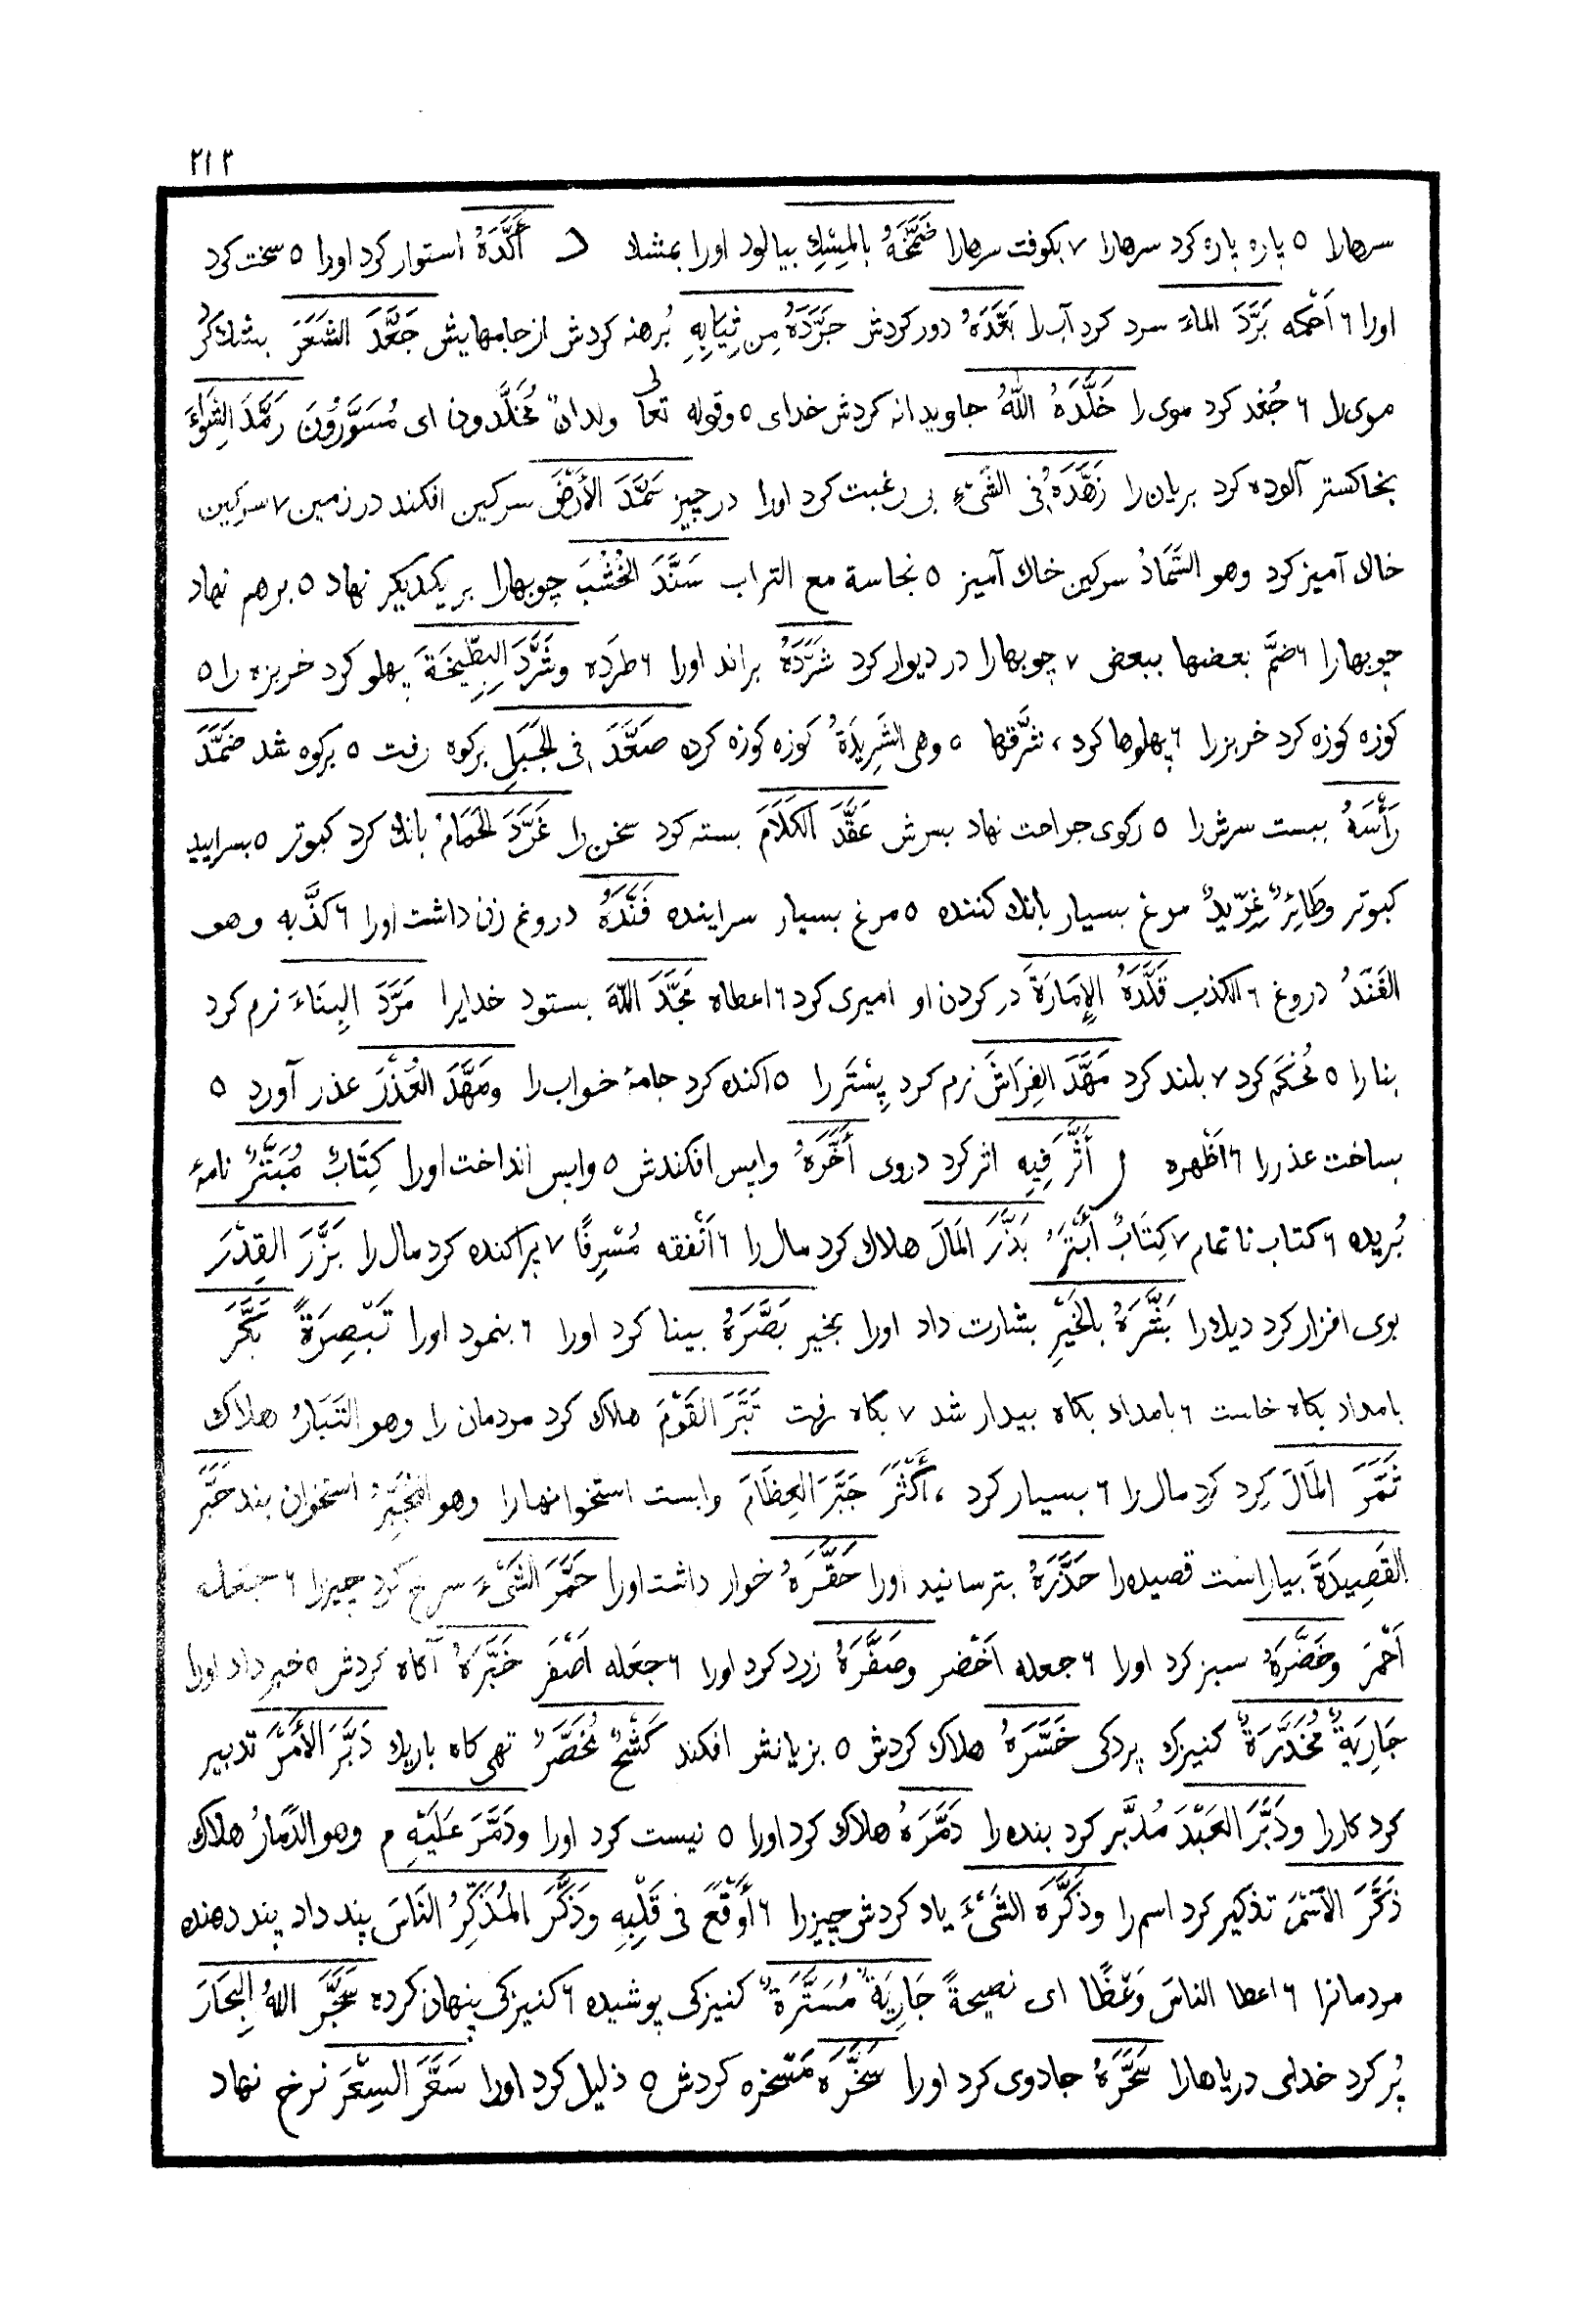 ٢١٣
سرهارا ٥ پاره پاره کرد سرهارا ٧ بکوفت سرهارا ضَمَّخَهُ بالمِسْكِ بیالود اورا بمشك د أَكَّدَهُ استوار کرد اورا ٥ سخت کرد
اورا ٦ اَحْكمه بَرَّدَ الماءَ سرد کرد آبرا بَعَّدَهُ دور کردش جَرَّدَهُ مِن ثِيَابِهِ بُرهنه کردش از جامهایش جَعَّدَ الشَعَرَ بشك کرد
موی را ٦ جُعْد کرد موی را خَلَّدَهُ اللّٰهُ جاویدانه کردش خدای ٥ وقوله تعالی ولدانٌ مُخَلَّدون ای مُسَوَّرُوُنَ رَمَّدَ الشِوَاءَ
بخاکستر آلوده کرد بریان را زَهَّدَهُ فِي الشَیْءِ بی رغبت کرد اورا در چیز سَمَّدَ الأَرْضَ سرکین افکند در زمین ٧ سرکین
خاك آمیز کرد وهو السَّمَادُ سرکین خاك آمیز ٥ نجاسة مع التراب سَنَّدَ الخُشُبَ چوبهارا بر یکدیکر نهاد ٥ برهم نهاد
چوبهارا ٦ ضَمَّ بعضها ببعض ٧ چوبهارا در دیوار کرد شَرَّدَهُ براند اورا ٦ طرَده وشَرَّدَ البِطِّيخَةَ پهلو کرد خربزه را ٥
کوزه کوزه کرد خربزرا ٦ پهلوها کرد، شرَّقها ٥ وهی الشَرِیدَةُ کوزه کوزه کرده صَعَّدَ فِی الجَبَلِ برکوه رفت ٥ برکوه شد ضَمَّدَ
رَأْسَهُ ببست سرش را ٥ رکوی جراحت نهاد بسرش عَقَّدَ الكَلَامَ بسته کرد سخن را غَرَّدَ الحَمَامُ بانك کرد کبوتر ٥ بسرایید
کبوتر وطَائِرٌ غِرِّيدٌ مرغ بسیار بانك کننده ٥ مرغ بسیار سراینده فَنَّدَهُ دروغ زن داشت اورا ٦ کذَّبه وهو
الفَنَدُ دروغ ٦ الكذب قَلَّدَهُ الإِمَارَةَ در کردن او امیری کرد ٦ اعطاه مَجَّدَ اللّٰهَ بستود خدایرا مَرَّدَ البِنَاءَ نرم کرد
بنا را ٥ مُحْكَم کرد ٧ بلند کرد مَهَّدَ الفِرَاشَ نرم کرد بِسْتَر را ٥ اکنده کرد جامهٔ خواب را ومَهَّدَ العُذْرَ عذر آورد ٥
بساخت عذررا ٦ اَظْهره ر أَثَّرَ فِيهِ اثر کرد دروی أَخَّرَهُ واپس افکندش ٥ واپس انداخت اورا كِتَابٌ مُبَتَّرٌ نامهٔ
بُریده ٦ کتاب نا تمام ٧ كِتَابٌ أَبْتَرُ بَذَّرَ المَالَ هلاك کرد مال را ٦ اَنْفقه مُسْرِفًا ٧ پراکنده کرد مال را بَزَّرَ القِدْرَ
بوی افزار کرد دیك را بَشَّرَهُ بالخَيْرِ بشارت داد اورا بخیر بَصَّرَهُ بینا کرد اورا ٦ بنمود اورا تَبْصِرَةً بَكَّرَ
بامداد بکاه خاست ٦ بامداد بکاه بیدار شد ٧ بکاه رفت تَبَّرَ القَوْمَ هلاك کرد مردمان را وهو التَبَارُ هلاك
ثَمَّرَ المَالَ کِرد کرد مال را ٦ بسیار کرد، أَكْثَرَ جَبَّرَ العِظَامَ وابست استخوانهارا وهو المُجَبِّرُ استخوان بند حَبَّرَ
القَصِيدَةَ بیاراست قصیده را حَذَّرَهُ بترسانید اورا حَقَّرَهُ خوار داشت اورا حَمَّرَ الشَیْءَ سرخ کرد چیزرا ٦ جعله
اَحْمَرَ وخَضَّرَهُ سبز کرد اورا ٦ جعله اَخْضر وصَفَّرَهُ زرد کرد اورا ٦ جعَله اَصْفَر خَبَّرَهُ آکاه کردش ٥ خبر داد اورا
جَارِيَةٌ مُخَدَّرَةٌ کنیزك پردکی خَسَّرَهُ هلاك کردش ٥ بزیانش افکند كَشْحٌ مُخَصَّرٌ تهی کاه باریك دَبَّرَ الأَمْرَ تدبیر
کرد کاررا ودَبَّرَ العَبْدَ مُدبَّر کرد بنده را دَمَّرَهُ هلاك کرد اورا ٥ نیست کرد اورا ودَمَّرَ عَلَيْهِ م وهو الدَّمَارُ هلاك
ذَكَّرَ الاسْمَ تذکیر کرد اسم را وذَكَّرَه الشَیْءَ یاد کردش چیزرا ٦ أَوْقَعَ فی قَلْبِهِ وَذَكَّرَ المُذَكِّرُ النَاسَ پند داد پند دهنده
مردمانرا ٦ اعطا الناسَ وَعْظًا ای نصیحةً جَارِيَةٌ مُسَتَّرَةٌ کنیزکی پوشیده ٦ کنیزکی پنهان کرده سَجَّرَ اللهُ البِحَارَ
پُر کرد خدای دریاهارا سَحَّرَهُ جادوی کرد اورا سَخَّرَه مَسْخره کردش ٥ ذلیل کرد اورا سَعَّرَ السِعْرَ نرخ نهاد